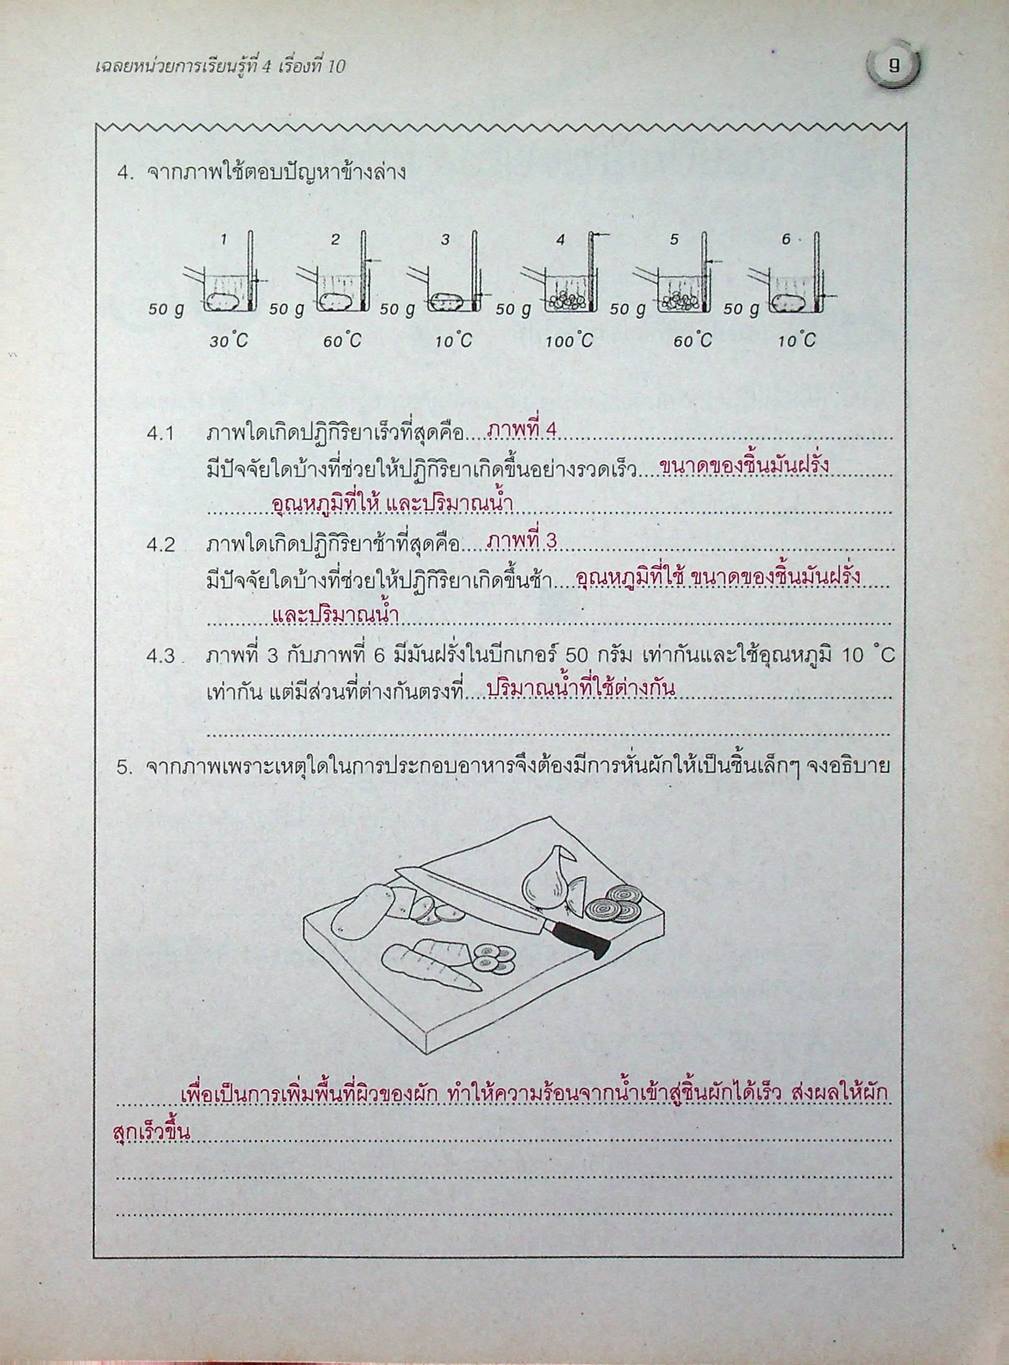 เฉลยหน่วยการเรียนรู้ที่ 4 เรื่องที่ 10
9
4. จากภาพใช้ตอบปัญหาข้างล่าง
1 2 3 4 5 6
50 g 50 g 50 g 50 g 50 g 50 g
30°C 60°C 10°C 100°C 60°C 10°C
4.1 ภาพใดเกิดปฏิกิริยาเร็วที่สุดคือ....ภาพที่ 4
มีปัจจัยใดบ้างที่ช่วยให้ปฏิกิริยาเกิดขึ้นอย่างรวดเร็ว....ขนาดของชิ้นมันฝรั่ง
อุณหภูมิที่ให้ และปริมาณน้ำ
4.2 ภาพใดเกิดปฏิกิริยาช้าที่สุดคือ....ภาพที่ 3
มีปัจจัยใดบ้างที่ช่วยให้ปฏิกิริยาเกิดขึ้นช้า....อุณหภูมิที่ใช้ ขนาดของชิ้นมันฝรั่ง
และปริมาณน้ำ
4.3 ภาพที่ 3 กับภาพที่ 6 มีมันฝรั่งในบีกเกอร์ 50 กรัม เท่ากันและใช้อุณหภูมิ 10 °C
เท่ากัน แต่มีส่วนที่ต่างกันตรงที่....ปริมาณน้ำที่ใช้ต่างกัน
5. จากภาพเพราะเหตุใดในการประกอบอาหารจึงต้องมีการหั่นผักให้เป็นชิ้นเล็กๆ จงอธิบาย
เพื่อเป็นการเพิ่มพื้นที่ผิวของผัก ทำให้ความร้อนจากน้ำเข้าสู่ชิ้นผักได้เร็ว ส่งผลให้ผัก
สุกเร็วขึ้น